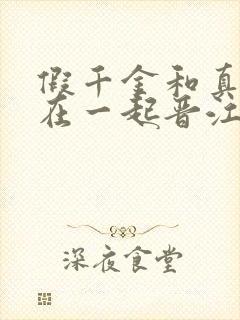 假千金和真
在一起晋江
深夜食堂